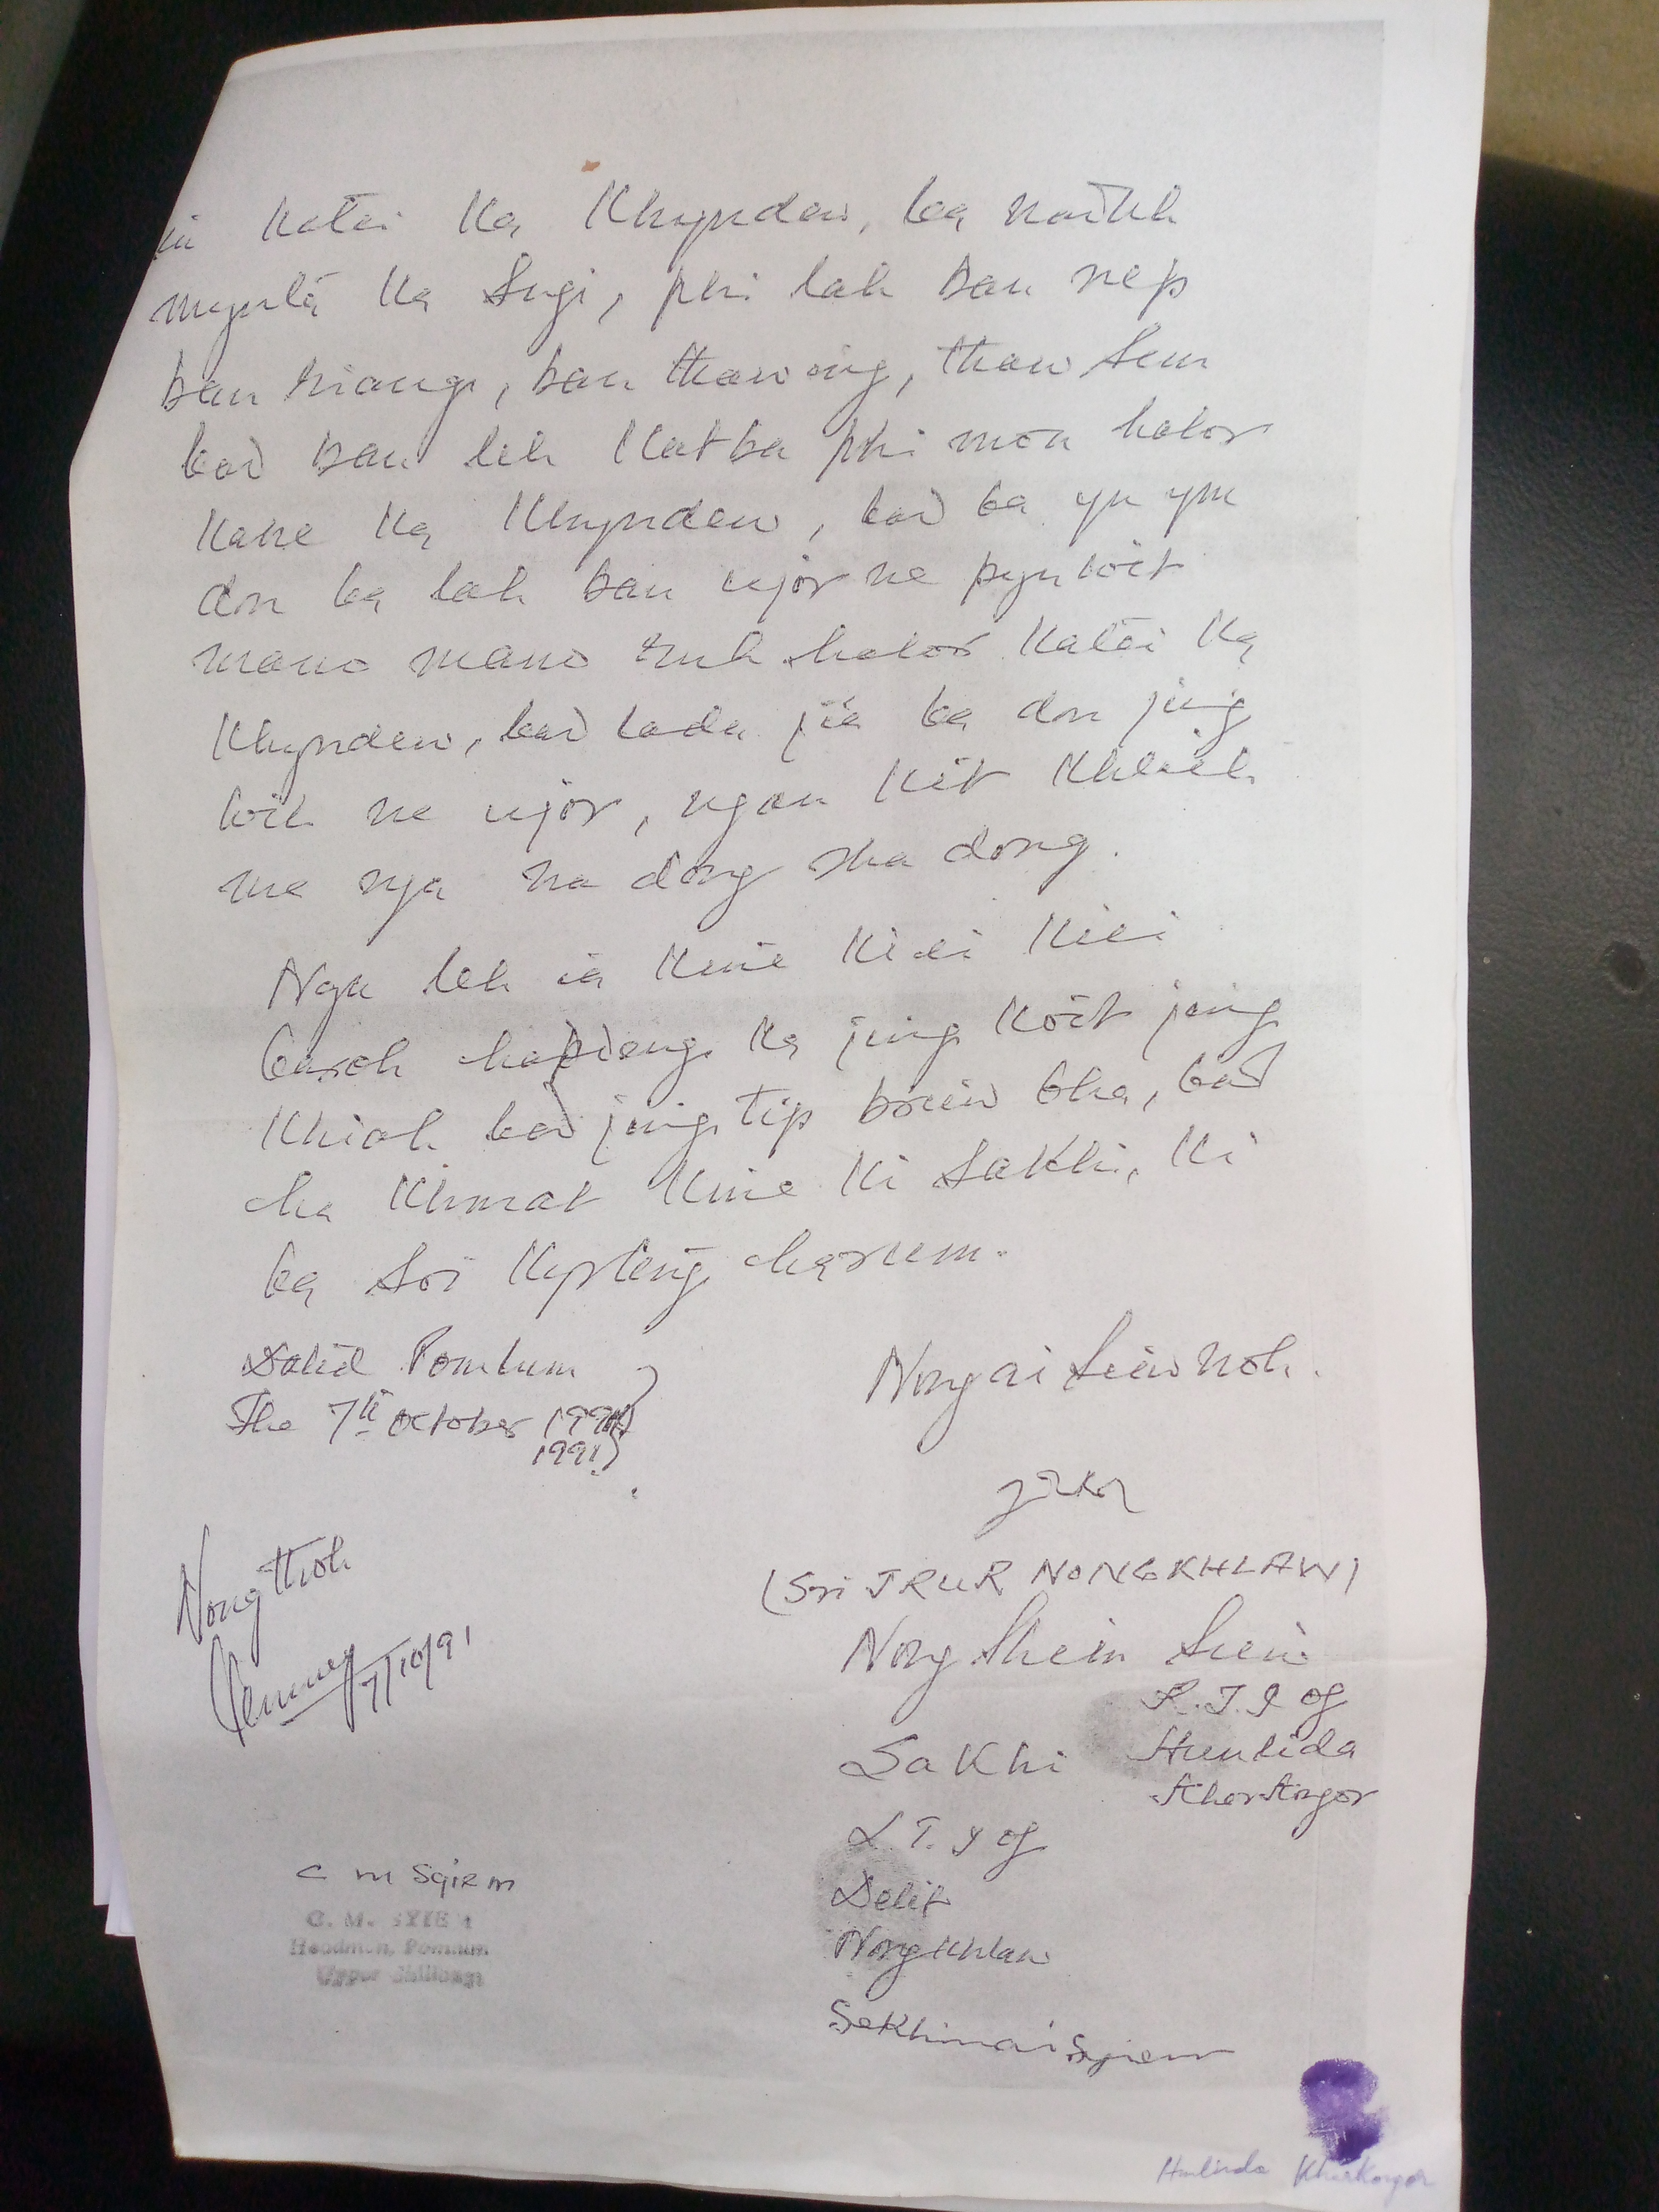 ia katei ka khyndew, ba naduh
mynta ka sngi, phi lah ban rep
ban riang, ban thaw ing, thaw sem
bad ban leh katba phi mon halor
kane ka khyndew, bad ba yn ym
don ba lah ban ujor ne pynwit
mano mano ruh halor katei ka
khyndew, bad lada jia ba don jing
wit ne ujor, ngan kit khlieh
ma nga na dong sha dong.
Nga leh ia kine kiei kiei
baroh hapdeng ka jing koit jing
khiah bad jing tip briew bha, bad
ha khmat kine ki sakhi, ki
ba soi kyrteng harum.
Dated Pomlum
The 7th October
1991
Nongai siew noh.
(Sri TRUR NONGKHLAW)
Nongthoh
7/10/91
Nong Shim Siew
R.T.I of
Hunlida
Kharkongor
Sakhi
L.T.I of
Delit
Nongkhlaw
C M Syiem
C. M. SYIEM
Headman, Pomlum
Upper Shillong
Sekhimai Syiem
Hunlinda Kharkongor